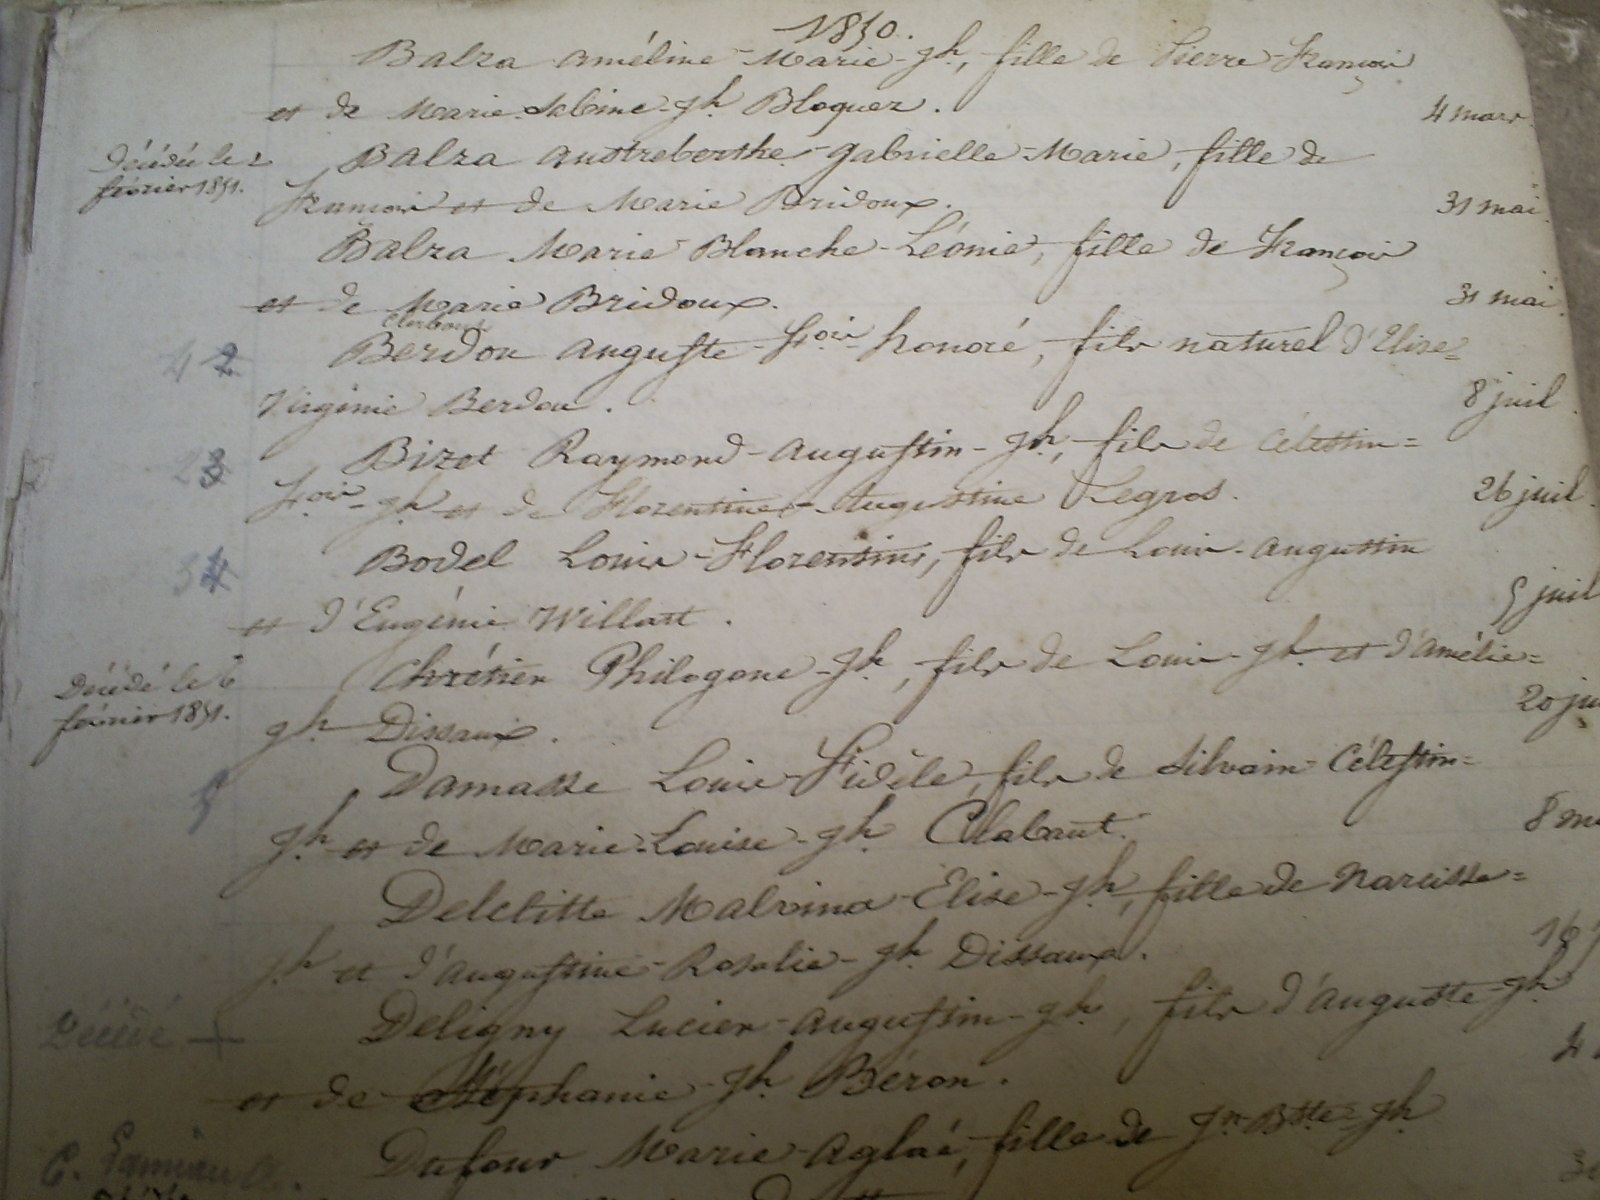 1850.
Balza Améline-Marie-Jh, fille de Pierre-François
et de Marie-Sabine-Jh Bloquez.
4 mars.
Décédée le 2
février 1851.
Balza Austreberthe-Gabrielle-Marie, fille de
François et de Marie Bridoux.
31 mai.
Balza Marie-Blanche-Léonie, fille de François
et de Marie Bridoux.
31 mai.
42
Berdou Auguste-Fois-honoré, fils naturel d'Elise=
Virginie Berdou.
8 juil.
23
Bizet Raymond-Augustin-Jh, fils de Célestin=
Fois-Jh et de Florentine-Augustine Legros.
26 juil.
34
Bodel Louis-Florentin, fils de Louis-Augustin
et d'Eugénie Willart.
5 juil
Décédé le 6
février 1851.
Chrétien Philogone-Jh, fils de Louis-Jh et d'Amélie=
Jh Dissaux.
20 ju
5
Damasse Louis-Fidèle, fils de Silvain-Célestin=
Jh et de Marie-Louise-Jh Clabaut.
8 m
Delclitte Malvina-Elise-Jh, fille de Narcisse=
Jh et d'Augustine-Rosalie-Jh Dissaux.
16
Décédé +
Deligny Lucien-Augustin-Jh, fils d'Auguste-Jh
et de Stéphanie-Jh Béron.
4
Dufour Marie-Aglaé, fille de Jn-Bste-Jh